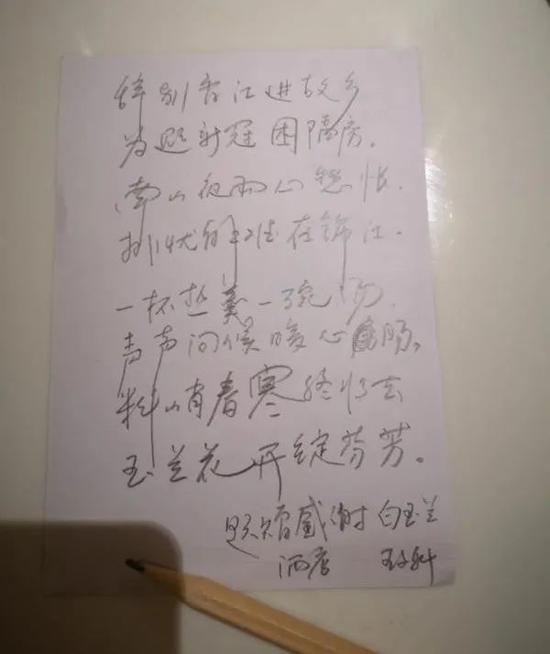 辞别香江进故乡
为避新冠困隔房。
南山夜雨心愁怅.
排忧解难在锦江.
一杯热羹一碗汤.
声声问候暖心肠。
料峭春寒终归去
玉兰花开绽芬芳。
题赠感谢白玉兰
酒店